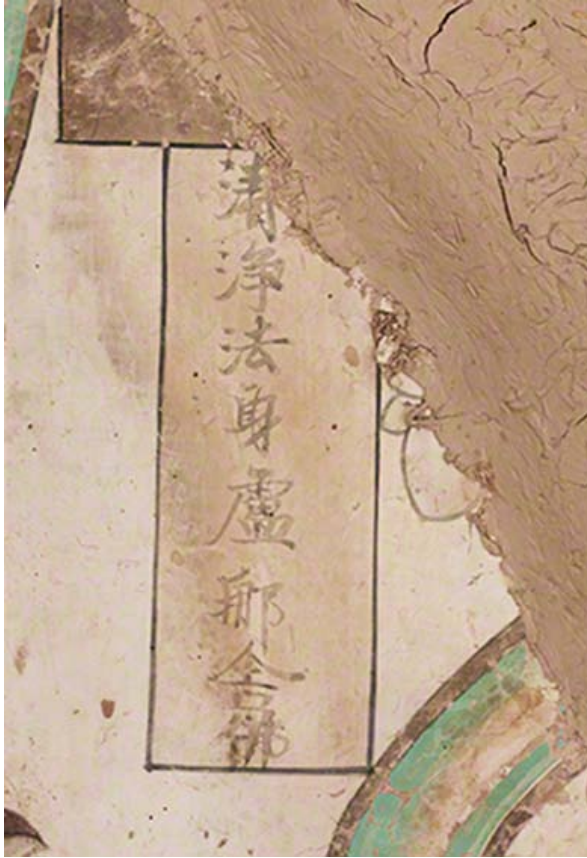 清淨法身盧那舍佛